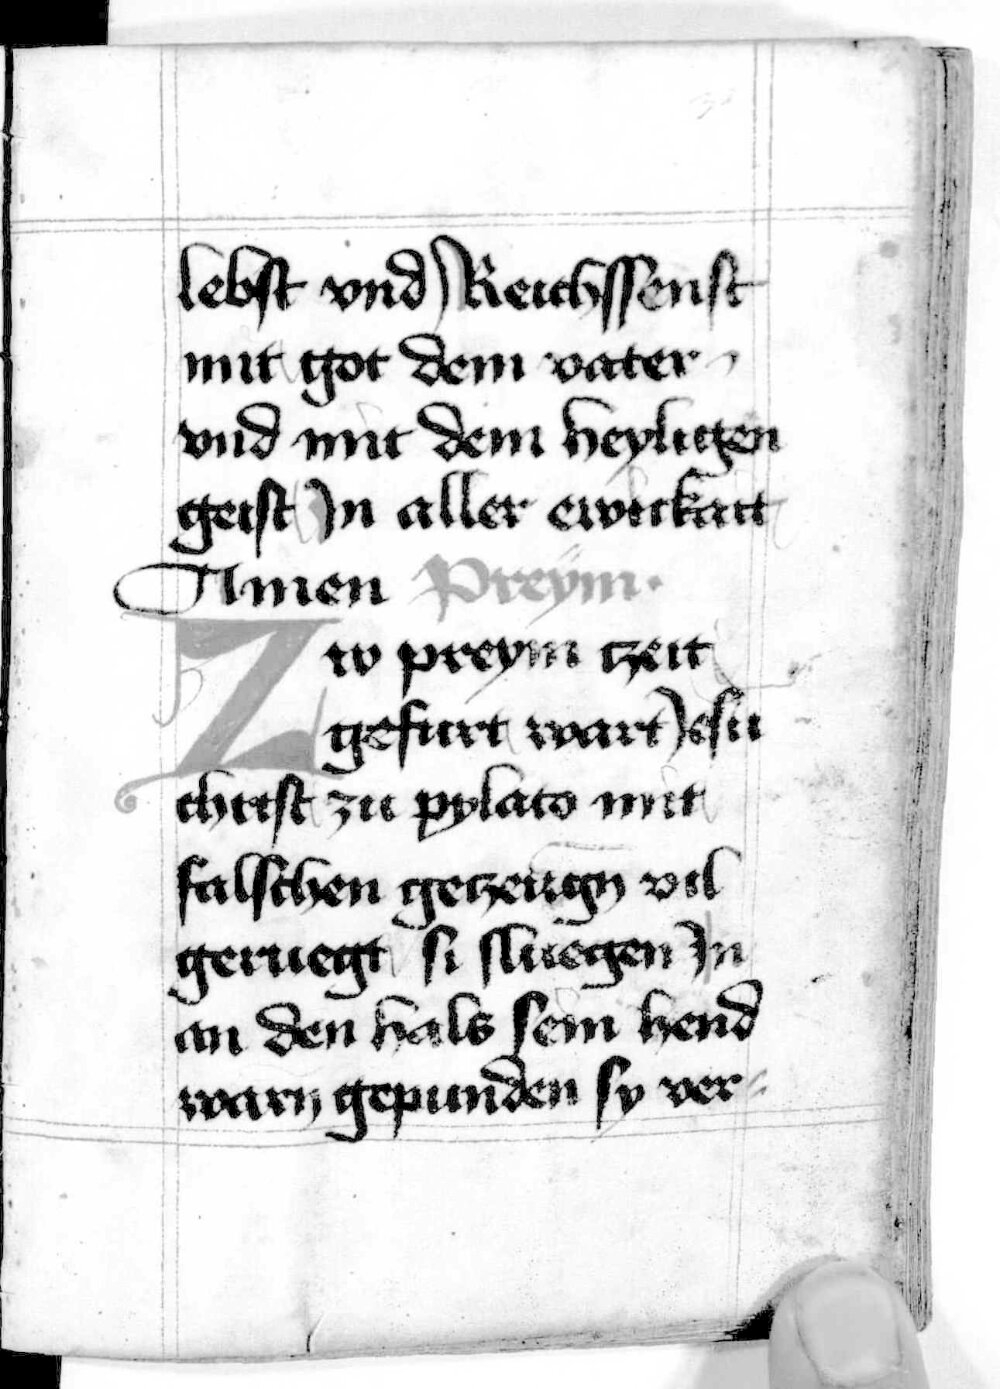 lebst vnd Reichssenst
mit got dem vater
vnd mit dem heyligen
geist Jn aller ewickait
Amen Preym.
Zw preym tzeit
gefurt wart Jesu
christ zu pylato mit
falschen getzeugn vil
geruegt si sluegen Jn
an den hals sein hend
warn gepunden sy ver-